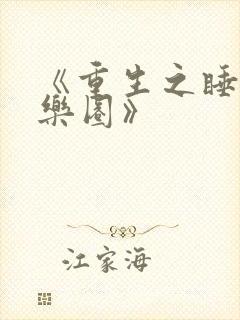 《重生之睡
樂園》
江家海